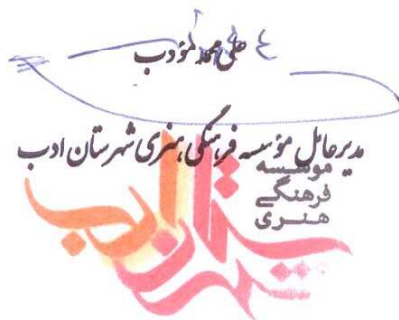 علی محمد مؤدب
مدیرعامل مؤسسه فرهنگی هنری شهرستان ادب
موسسه
فرهنگی
هنری
شهرستان ادب